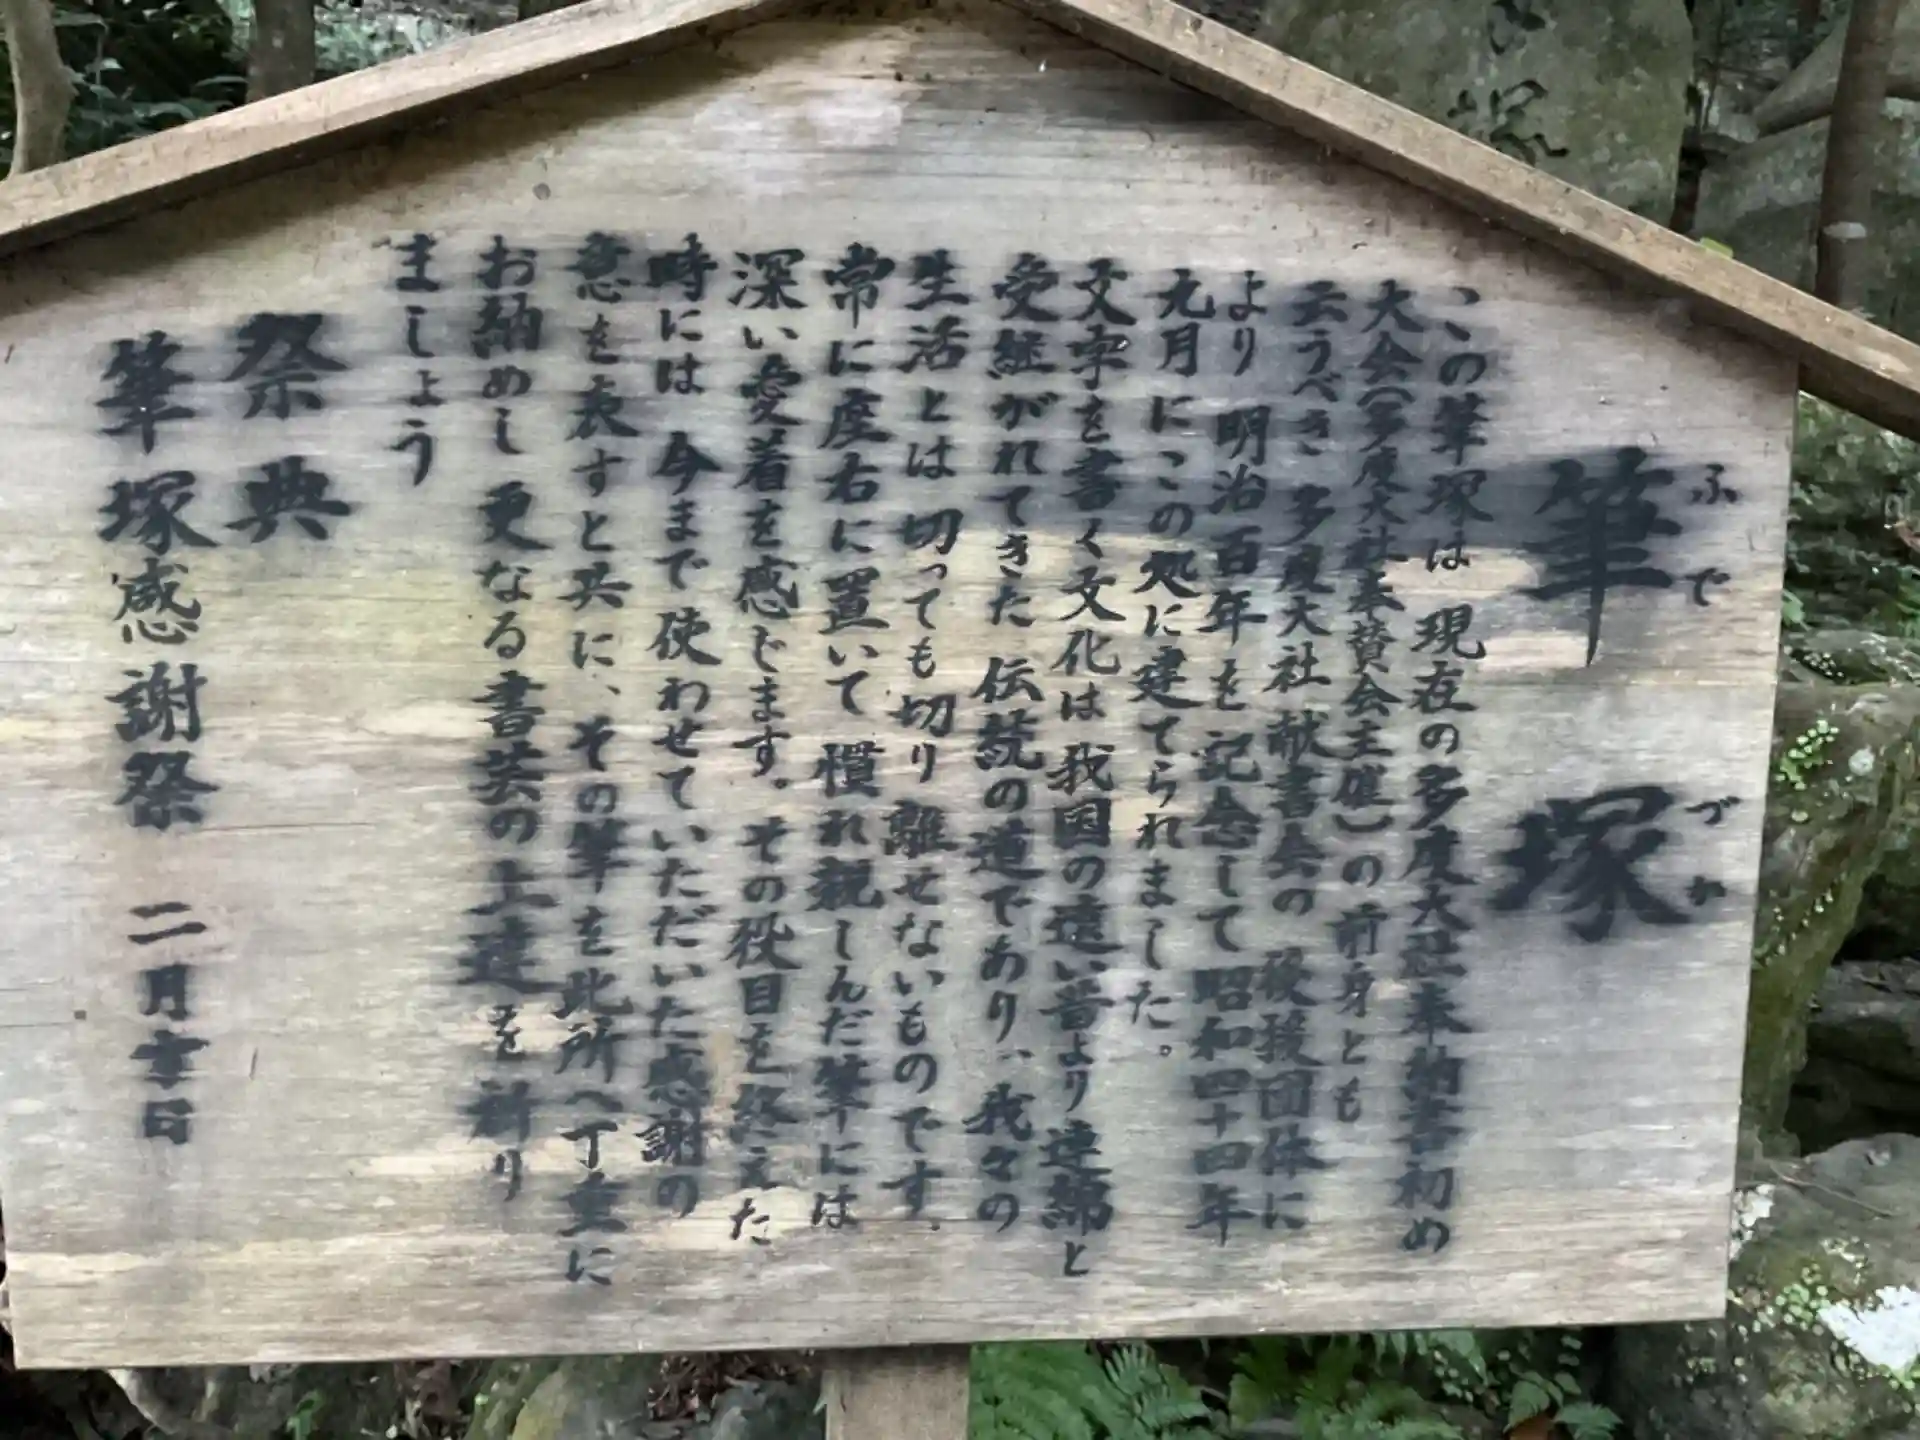 筆塚
ふでづか
この筆塚は 現在の多度大社奉納書初め
大会(多度大社奉賛会主催)の前身とも
云うべき 多度大社献書会の後援団体に
より 明治百年を記念して昭和四十四年
九月にこの処に建てられました。
文字を書く文化は我国の遠い昔より連綿と
受継がれてきた 伝統の道であり、我々の
生活とは切っても切り離せないものです。
常に座右に置いて慣れ親しんだ筆には
深い愛着を感じます。その役目を終えた
時には今まで使わせていただいた感謝の
意を表すと共に、その筆を此所へ丁重に
お納めし 更なる書芸の上達を祈り
ましょう
祭典
筆塚感謝祭 二月 日